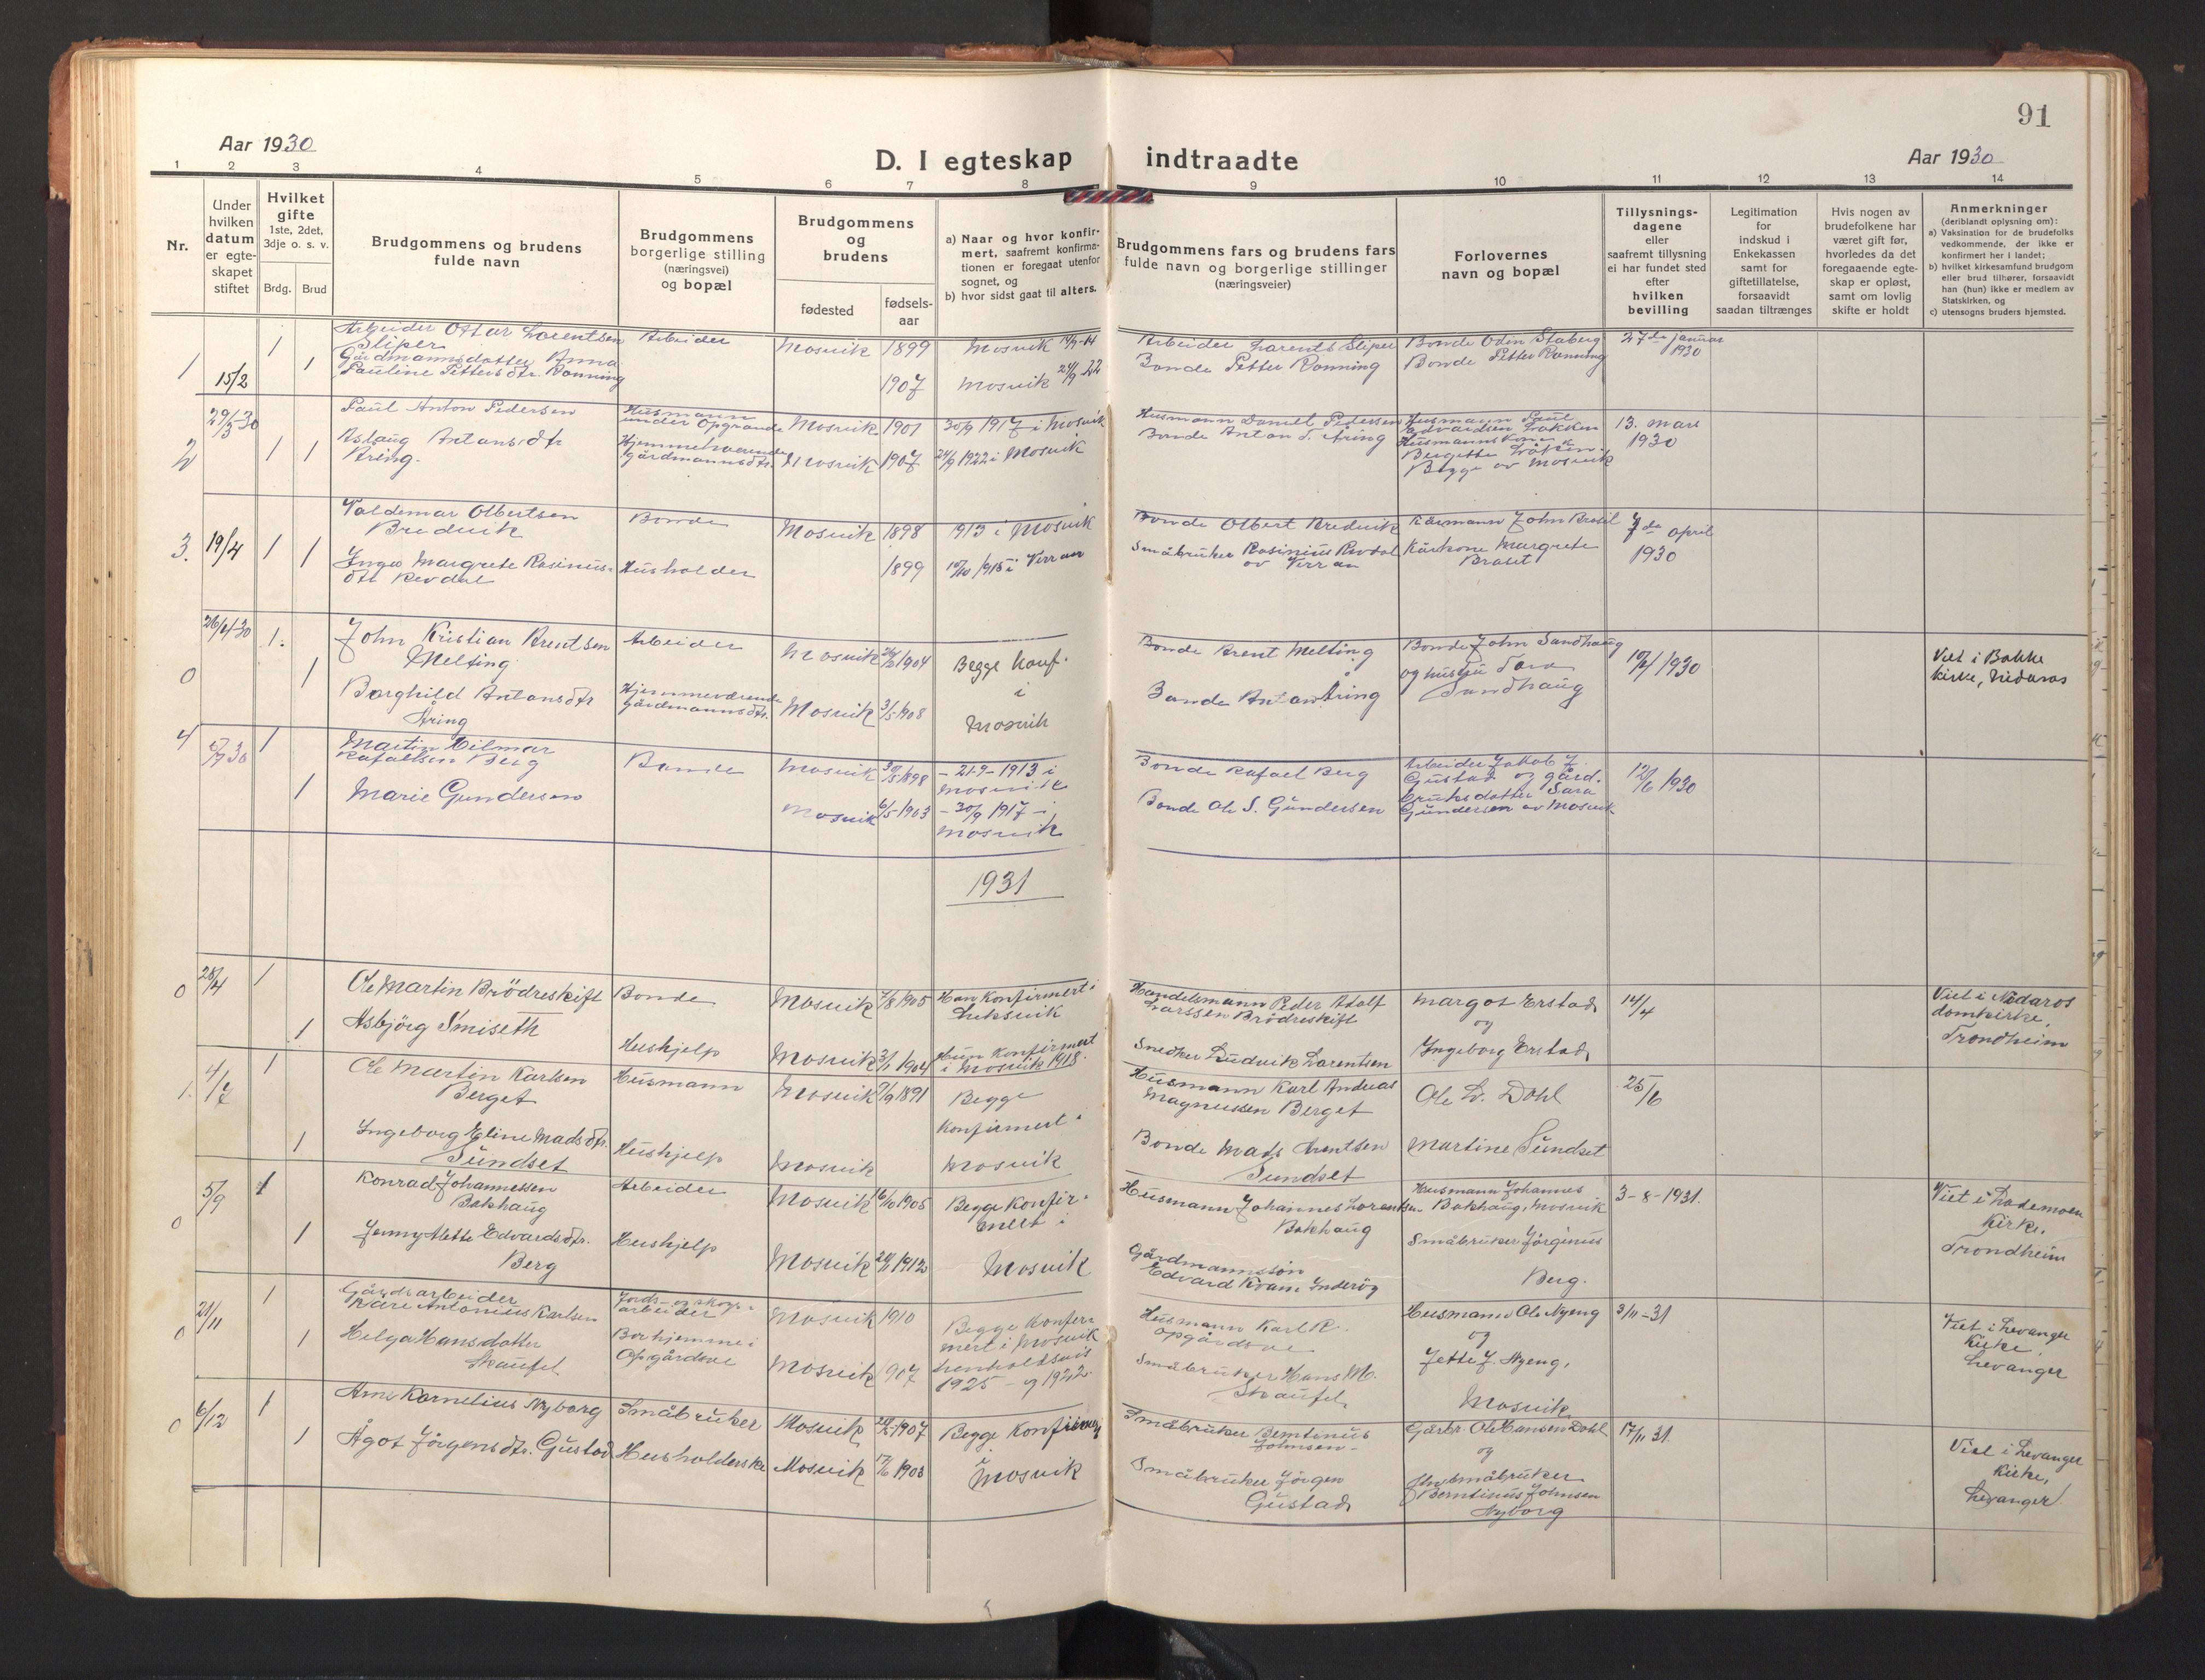 91
Aar 1930
D. I egteskap indtraadte
Aar 1930
1 2 3 4 5 6 7 8 9 10 11 12 13 14
Nr.
Under
hvilken
datum
er egte-
skapet
stiftet
Hvilket
gifte
1ste, 2det,
3dje o. s. v.
Brdg. Brud
Brudgommens og brudens
fulde navn
Brudgommens
borgerlige stilling
(næringsvei)
og bopæl
Brudgommens
og
brudens
fødested
fødsels-
aar
a) Naar og hvor konfir-
mert, saafremt konfirma-
tionen er foregaat utenfor
sognet, og
b) hvor sidst gaat til alters.
Brudgommens fars og brudens fars
fulde navn og borgerlige stillinger
(næringsveier)
Forlovernes
navn og bopæl
Tillysnings-
dagene
eller
saafremt tillysning
ei har fundet sted
efter
hvilken
bevilling
Legitimation
for
indskud i
Enkekassen
samt for
giftetillatelse,
forsaavidt
saadan tiltrænges
Hvis nogen av
brudefolkene har
været gift før,
hvorledes da det
foregaaende egte-
skap er opløst,
samt om lovlig
skifte er holdt
Anmerkninger
(deriblandt oplysning om):
a) Vaksination for de brudefolks
vedkommende, der ikke er
konfirmert her i landet;
b) hvilket kirkesamfund brudgom
eller brud tilhører, forsaavidt
han (hun) ikke er medlem av
Statskirken, og
c) utensogns bruders hjemsted.
1
15/2
1
1
Arbeider Ottar Lorentsen
Sliper
Gårdmannsdatter Anna
Pauline Pettersdtr. Rønning
Arbeider
Mosvik 1899
1907
Mosvik 14
Mosvik 24/9 22
Arbeider Larents Sliper
Bonde Petter Rønning
Bonde Odin Staberg
Bonde Petter Rønning
27de januar
1930
2
29/3-30
1 1
Paul Anton Pedersen
Aslaug Antonsdtr
Åring.
Husmann
under Opgrande
Hjemmeværende
gårdmannsdtr.
Mosvik 1901
Mosvik 1907
30/9 1917 i Mosvik
24/9 1922 i Mosvik
Husmann Daniel Pedersen
Bonde Anton T. Åring
Husmann Paul
Edvardsen Løkken
Husmannskone
Bergitte Løkken
Begge av Mosvik
13. mars
1930
3.
19/4
1 1
Valdemar Olbertsen
Bredvik
Inga Margrete Rasinus-
dtr Revdal
Bonde
Husholder
Mosvik 1898
1899
1913 i Mosvik
1915 i Verran
Bonde Olbert Bredvik
Småbruker Rasinius Revdal
av Verran
Kårmann John Braset
Kårkone Margrete
Braset
7de april
1930
0
26/4-30
1.
1
John Kristian Arentsen
Melting
Borghild Antonsdtr
Åring
Arbeider
Hjemmeværende
Gårdmannsdtr.
Mosvik 1904
Mosvik 3/5 1908
Begge konf.
i
Mosvik
Bonde Arent Melting
Bonde Anton Åring
Bonde John Sandhaug
og hustru Sara
Sandhaug
10/4 1930
Viet i Bakke
kirke, Nidaros
4
30
1
1
Martin Hilmar
Rafaelsen Berg
Marie Gundersen
Bonde
Mosvik 1898
Mosvik 6/5 1903
- 21-9-1913 i
Mosvik
- 30/9 1917 i
Mosvik
Bonde Rafael Berg
Bonde Ole S. Gundersen
Arbeider Jakob J.
Gustad og gård-
bruksdatter Sara
Gundersen av Mosvik
12/6 1930
1931
0
28/4
1
1
Ole Martin Brödreskift
Asbjörg Smiseth
Bonde
Hushjelp
Mosvik 1905
Mosvik 3/1 1904
Han konfirmert i
Leksvik
Hun konfirmert
i Mosvik 1918.
Handelsmann Peder Adolf
Larssen Brödreskift
Snedker Ludvik Larentsen
Margot Erstad
og
Ingeborg Erstad
14/4
Viet i Nidaros
domkirke,
Trondheim
1.
4/7
1
1
Ole Martin Karlsen
Berget
Ingeborg Eline Madsdtr.
Sundset
Husmann
Hushjelp
Mosvik 1891
Mosvik
Begge
konfirmert i
Mosvik
Husmann Karl Andreas
Magnussen Berget
Bonde Mads Arentsen
Sundset
Ole L. Dahl
Martine Sundset
25/6
0
5/9
1
1
Konrad Johannessen
Bakhaug
Jenny Alette Edvardsdtr.
Berg
Arbeider
Hushjelp
Mosvik 1905
Mosvik 1912
Begge konfir-
mert i
Mosvik
Husmann Johannes Lorentsen
Bakhaug
Gårdmannssön
Edvard Kvam Inderöy
Husmann Johannes
Bakhaug, Mosvik
Småbruker Jörginus
Berg.
3-8-1931.
Viet i Lademoen
Kirke,
Trondheim
0
21/11
1
1
Gårdsarbeider
Kåre Antonius Karlsen
Helga Hansdatter
Skaufel
Jords- og skogs-
arbeider
Bor hjemme i
Opgårdsve
Mosvik 1910
Mosvik 907
Begge konfir-
mert i Mosvik
henholdsvis
1925 - og 1922.
Husmann Karl R.
Opgårdsve
Småbruker Hans M.
Skaufel
Husmann Ole Nyeng
og
Jette J. Nyeng,
Mosvik
3/11-31
Viet i Levanger
Kirke,
Levanger
0
6/12
1
1
Arne Kornelius Nyborg
Ågot Jörgensdtr. Gustad
Småbruker
Husholderske
Mosvik 1907
Mosvik 1903
Begge konfirmert
i
Mosvik
Småbruker Berntinus
Johnsen-
Småbruker Jörgen
Gustad
Gårbr. Ole Hansen Dahl
og
Småbruker
Berntinus Johnsen
Nyborg
17/11 31.
Viet i Levanger
Kirke,
Levanger.